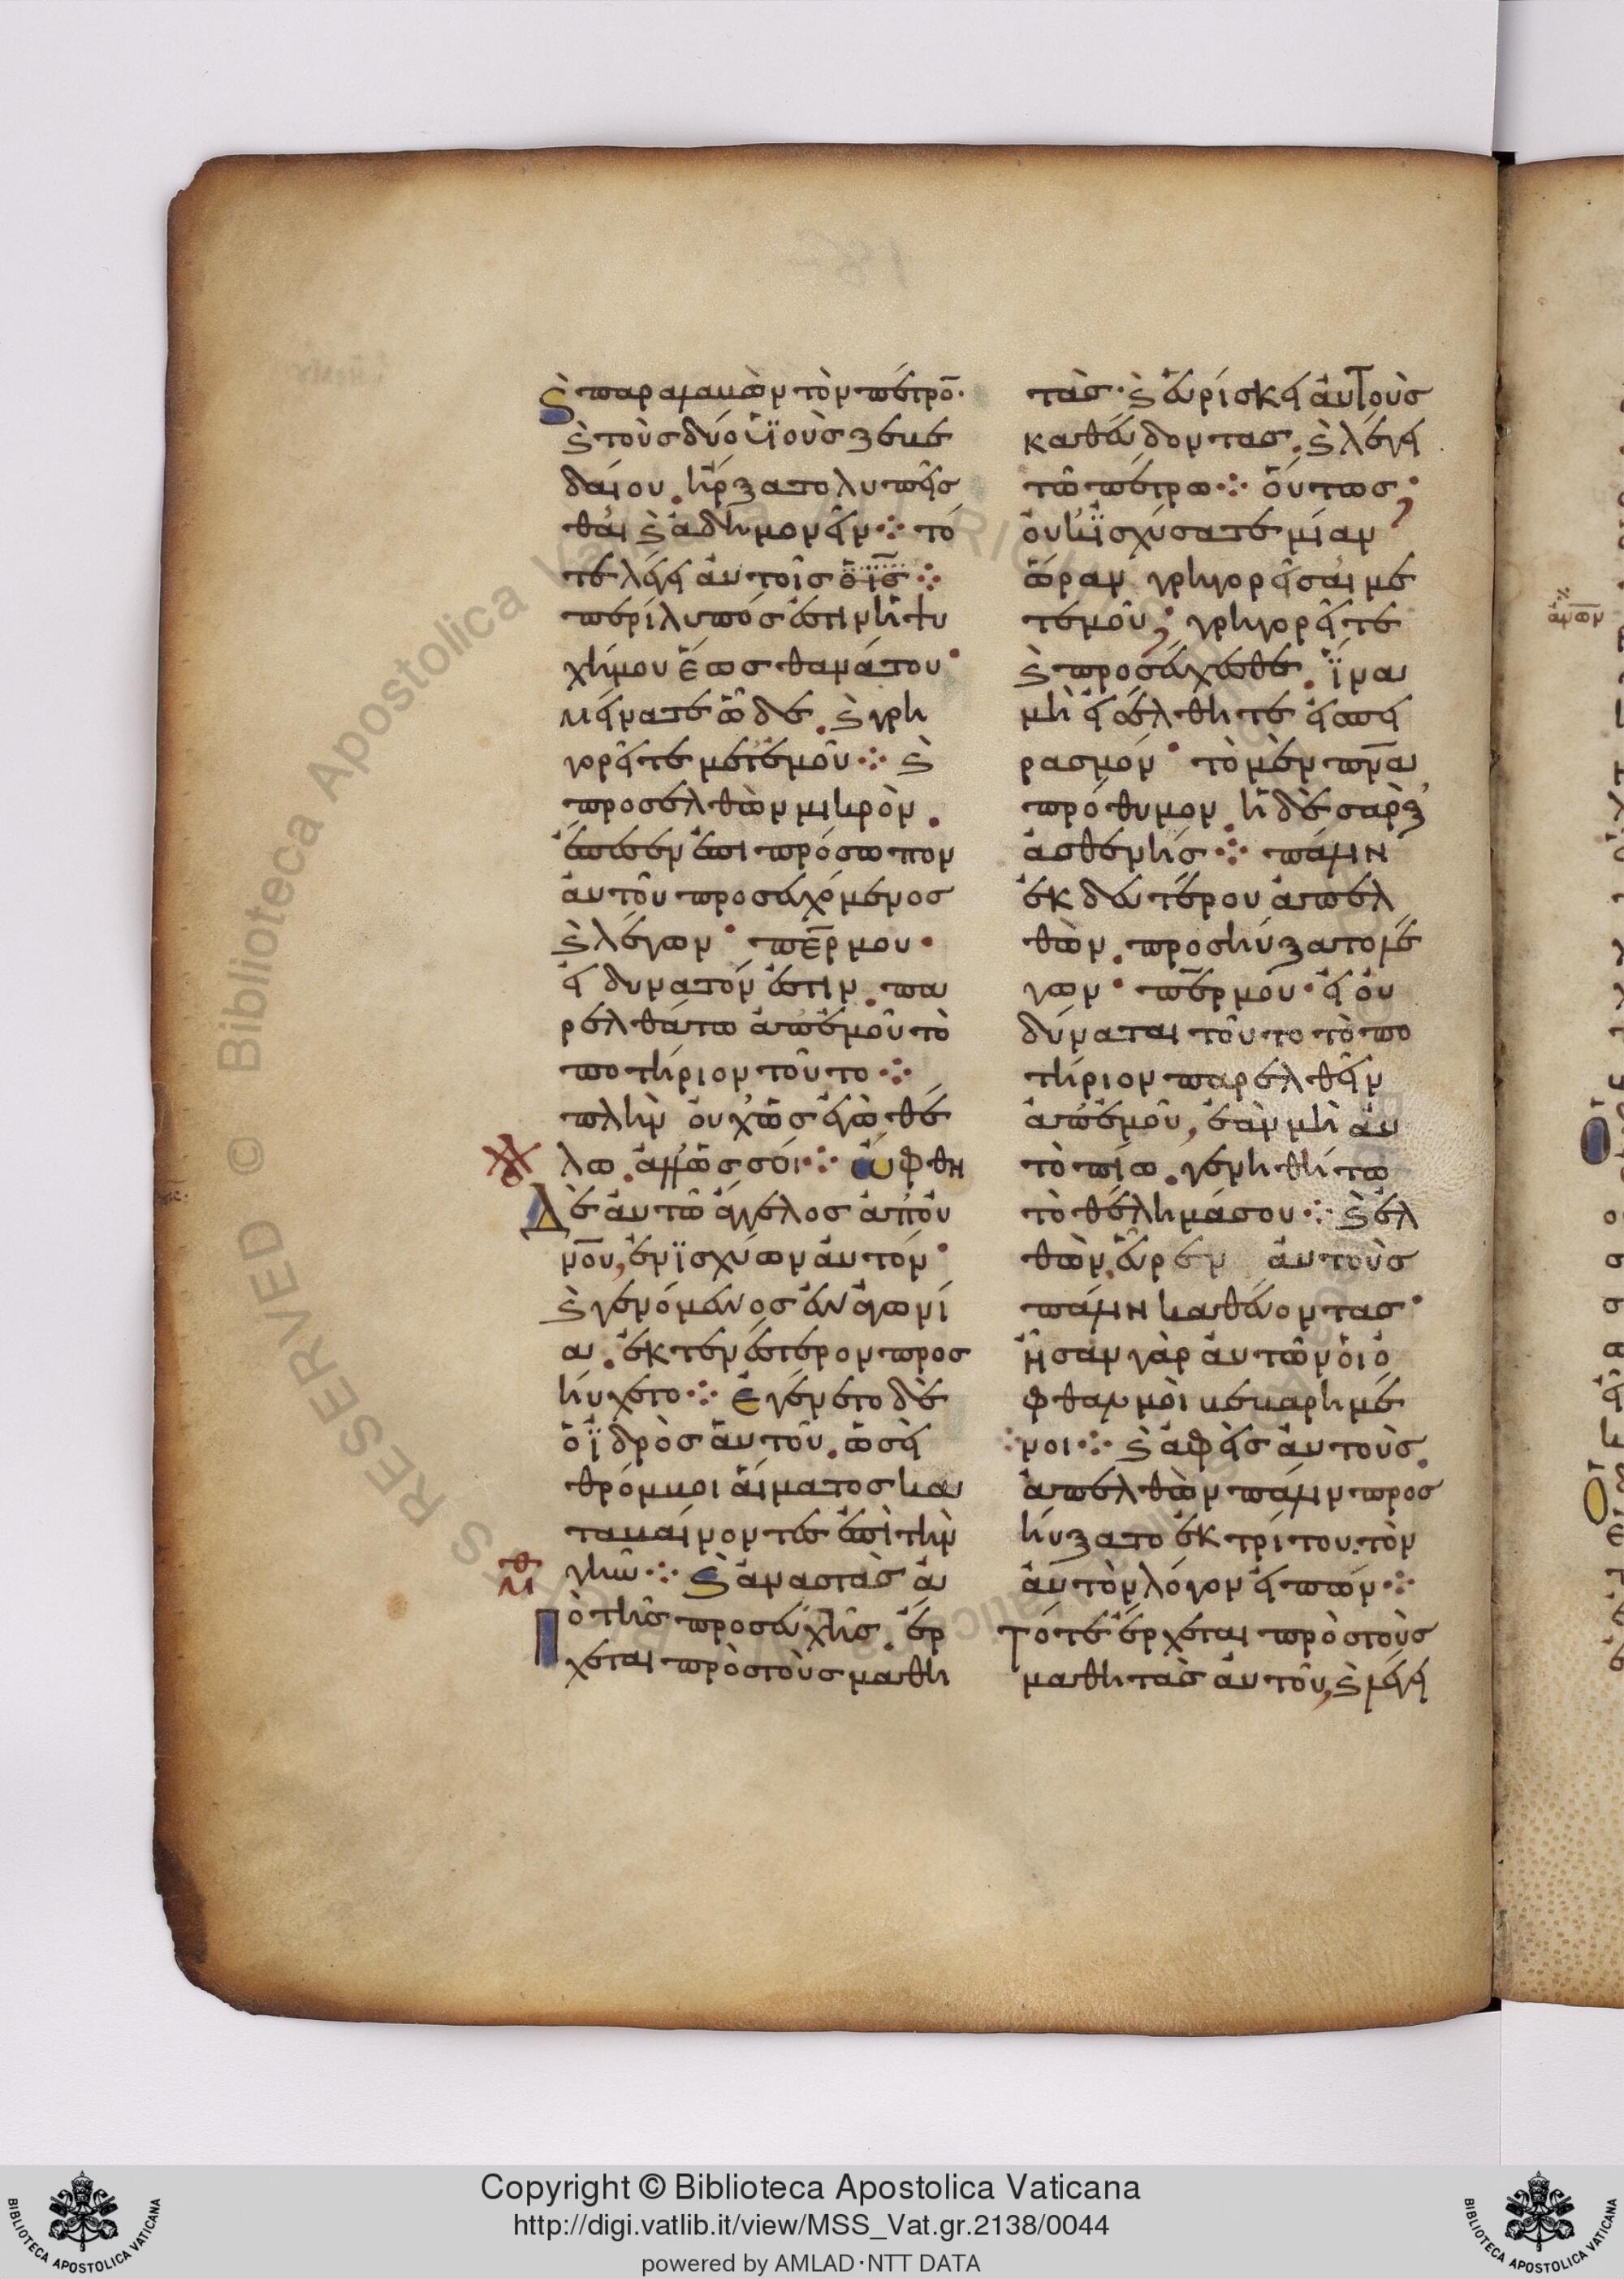 Ϗ παραλαβὼν τὸν πέτρο̅·
ϗ τοὺς δύο υἱοὺς ζεβε
δαίου. ἤρξατο λυπεῖσ
θαι ϗ ἀδημονεῖν ⁘ τό
τε λέγει αὐτοῖς ὁ ι̅ς̅ ⁘
περίλυπός ἐστιν ἡ ψυ
χή μου ἕως θανάτου·
μείνατε ὧδε. ϗ γρη
γορεῖτε μετ' ἐμοῦ ⁘ ϗ
προσελθὼν μικρὸν.
ἔπεσεν ἐπι πρόσωπον
αὐτοῦ προσευχόμενος
ϗ λέγων· π̅ε̅ρ μου·
εἰ δυνατόν ἐστιν. πα
ρελθάτω ἀπ' ἐμοῦ τὸ
ποτήριον τοῦτο ⁘
πλὴν οὐχ ὡς ἐγὼ θέ
λω. ἀλλ' ὡς σοί ⁘ ὤφθη
Δὲ αὐτῶ ἄγγελος ἀπ' οὐ
ν̅ου, ἐνϊσχύων αὐτόν·
ϗ γενόμενος ἐν ἀγωνί
α. ἐκτενέστερον προσ
ηύχετο ⁘ Ἐγένετο δὲ
ὁ ἱδρὸς αὐτοῦ. ὡσεὶ
θρόμβοι αἵματος κα
ταβαίνοντες ἐπὶ τὴν
γῆν ⁘ ϗ ἀναστὰς ἀ
Πὸ τῆς προσευχῆς. ἔρ
χεται πρὸς τοὺς μαθη
τὰς· ϗ εὑρίσκει αὐτοὺς
καθεύδοντας. ϗ λέγει
τῶ πέτρω ⁘ οὕτως;
οὐκ ἰσχύσατε μίαν
ὥραν γρηγορεῖσαι με
τ' ἐμοῦ; γρηγορεῖτε
ϗ προσεύχεσθε. ἵνα
μὴ εἰσέλθητε εἰς πει
ρασμόν· τὸ μὲν πν̅α
πρόθυμον. ἡ δὲ σὰρξ
ἀσθενής ⁘ πάλιν
ἐκ δευτέρου ἀπελ
θὼν. προσηύξατο λέ
γων· πε̅ρ μου· εἰ οὐ
δύναται τοῦτο τὸ πο
τήριον παρελθεῖν
ἀπ' ἐμοῦ, ἐὰν μὴ αὐ
τὸ πίω. γενηθήτω
τὸ θέλημά σου ⁘ ϗ ἐλ
θὼν. εὗρεν αὐτοὺς
πάλιν καθεύδοντας·
ἦσαν γὰρ αὐτῶν οἱ ὀ
φθαλμοὶ βεβαρημέ
νοι ⁘ ϗ ἀφεὶς αὐτοὺς.
ἀπελθὼν πάλιν προσ
ηύξατο ἐκ τρίτου. τὸν
αὐτὸν λόγον εἰπών ⁘
Τότε ἔρχεται πρὸς τοὺς
μαθητὰς αὐτοῦ, ϗ λέγει
Copyright © Biblioteca Apostolica Vaticana
http://digi.vatlib.it/view/MSS_Vat.gr.2138/0044
powered by AMLAD·NTT DATA